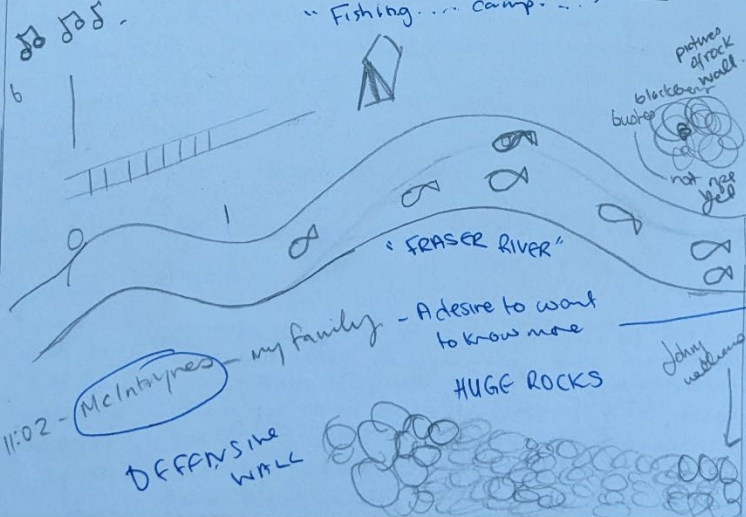 "Fishing.... camp....
6
pictures
of rock
wall.
blackberry
bushes
not ripe
yet
"FRASER RIVER"
11:02 - McIntyres - my family - A desire to want
to know more
HUGE ROCKS
Johny
DEFENSIVE
WALL